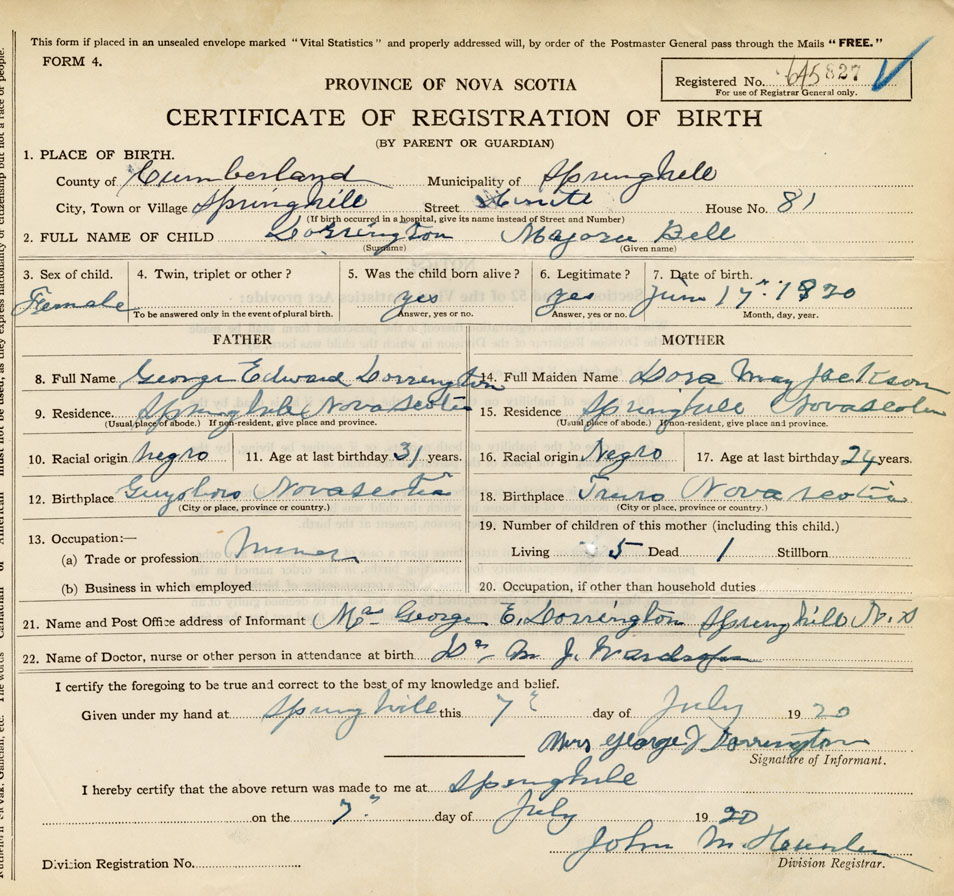 This form if placed in an unsealed envelope marked "Vital Statistics" and properly addressed will, by order of the Postmaster General pass through the Mails "FREE."
FORM 4.
Registered No. 645827
For use of Registrar General only.
PROVINCE OF NOVA SCOTIA
CERTIFICATE OF REGISTRATION OF BIRTH
(BY PARENT OR GUARDIAN)
1. PLACE OF BIRTH.
County of Cumberland Municipality of Springhill
City, Town or Village Springhill Street House No. 81
(If birth occurred in a hospital, give its name instead of Street and Number)
2. FULL NAME OF CHILD Dorrington Marjorie Bell
(Surname) (Given name)
3. Sex of child. 4. Twin, triplet or other? 5. Was the child born alive? 6. Legitimate? 7. Date of birth.
Female yes yes June 17th 1920
To be answered only in the event of plural birth. Answer, yes or no. Answer, yes or no. Month, day, year.
FATHER MOTHER
8. Full Name George Edward Dorrington 14. Full Maiden Name Dora May Jackson
9. Residence. Springhill Nova Scotia 15. Residence Springhill Nova Scotia
(Usual place of abode.) If non-resident, give place and province. (Usual place of abode.) If non-resident, give place and province.
10. Racial origin negro 11. Age at last birthday 31 years. 16. Racial origin Negro 17. Age at last birthday 24 years.
12. Birthplace Guysboro Nova Scotia 18. Birthplace Truro Nova Scotia
(City or place, province or country.) (City or place, province or country.)
13. Occupation:— 19. Number of children of this mother (including this child.)
(a) Trade or profession Miner Living 5 Dead 1 Stillborn
(b) Business in which employed 20. Occupation, if other than household duties
21. Name and Post Office address of Informant Mrs George E. Dorrington Springhill N.S
22. Name of Doctor, nurse or other person in attendance at birth Dr M J
I certify the foregoing to be true and correct to the best of my knowledge and belief.
Given under my hand at Springhill this 7th day of July 1920
Mrs George Dorrington
Signature of Informant.
I hereby certify that the above return was made to me at Springhill
on the 7th day of July 1920
John M.
Division Registrar.
Division Registration No.